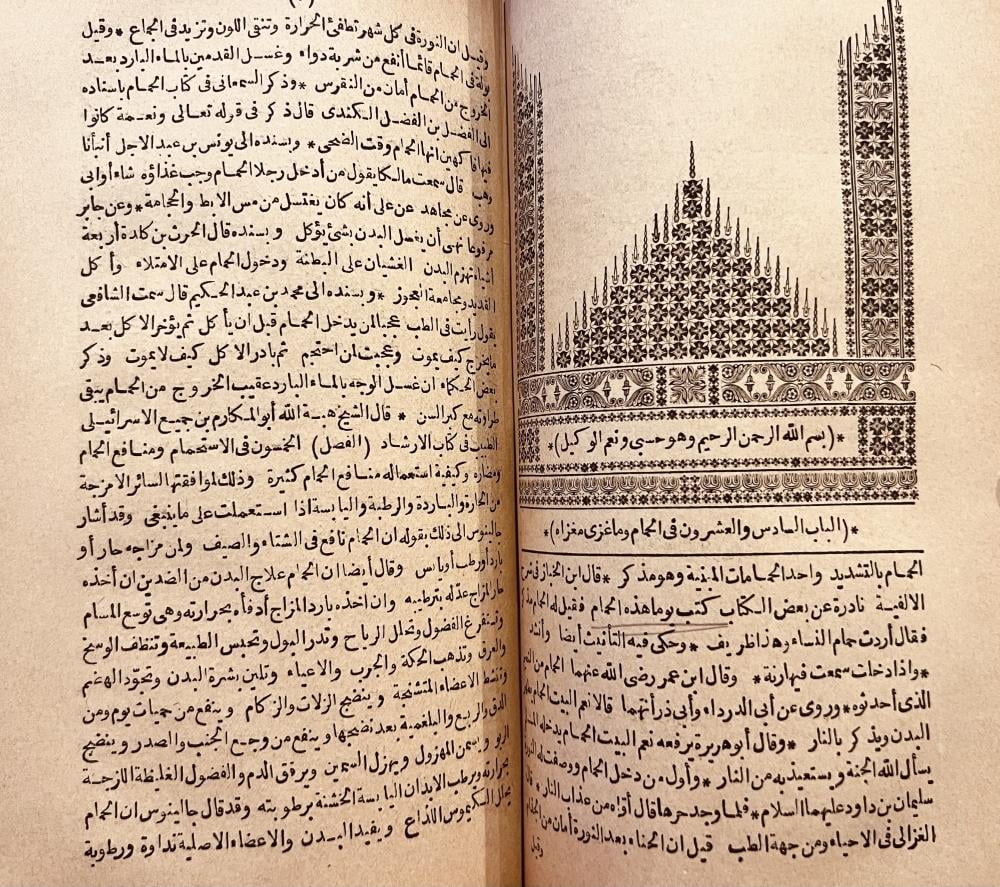 *(بسم الله الرحمن الرحيم وهو حسبى ونعم الوكيل)*
*(الباب السادس والعشرون فى الحمام وما غزى مغزاه)*
الحمام بالتشديد واحد الحمامات المبنية وهو مذكر * قال ابن الخباز فى شرح
الالفية نادرة عن بعض الكتاب كتب يوما هذه الحمام فقيل له الحمام مذكر
فقال أردت حمام النساء وهذا ظريف * وحكى فيه التأنيث أيضا وأنشد
* واذا دخلت سمعت فيها رنة * وقال ابن عمر رضى الله عنهما الحمام من النعيم
الذى أحدثوه * وروى عن أبى الدرداء وأبى ذر أنهما قالا نعم البيت الحمام
البدن ويذكر بالنار * وقال أبو هريرة يرفعه نعم البيت الحمام يدخله
يسأل الله الجنة ويستعيذ به من النار * وأول من دخل الحمام ووصفت له النورة
سليمان بن داود عليهما السلام * فلما وجد حرها قال أواه من عذاب النار *
الغزالى فى الاحياء ومن جهة الطب قيل ان الحناء بعد النورة أمان من الجذام
وقيل
وقيل ان النورة فى كل شهر تطفئ الحرارة وتنقى اللون وتزيد فى الجماع * وقيل
بولة فى الحمام قائما أنفع من شربة دواء وغسل القدمين بالماء البارد بعد
الخروج من الحمام أمان من النقرس * وذكر السمعانى فى كتاب الحمام باسناده
الى الفضل بن الفضل الكندى قال ذكر فى قوله تعالى ونعمة كانوا
فيها فاكهين انها الحمام وقت الضحى * وبسنده الى يونس بن عبد الاجل أنبأنا
وهب قال سمعت مالكا يقول من أدخل رجلا الحمام وجب غذاؤه شاء أو أبى
وروى عن مجاهد عن على أنه كان يغتسل من مس الابط والحجامة * وعن جابر
مرفوعا نهى أن يغسل البدن بشئ يؤكل وبسنده قال الحرث بن كلدة أربعة
أشياء تهزم البدن الغشيان على البطنة ودخول الحمام على الامتلاء وأكل
القديد ومجامعة العجوز * وبسنده الى محمد بن عبد الحكيم قال سمعت الشافعى
يقول رأيت فى الطب عجبا لمن يدخل الحمام قبل ان يأكل ثم يؤخر الاكل بعد
ما يخرج كيف يموت وعجبت ان احتجم ثم بادر الاكل كيف لا يموت وذكر
بعض الحكماء ان غسل الوجه بالماء البارد عقيب الخروج من الحمام يبقى
طراوته مع كبر السن * قال الشيخ هبة الله أبو المكارم بن جميع الاسرائيلى
الطبيب فى كتاب الارشاد (الفصل) الخمسون فى الاستحمام ومنافع الحمام
ومضاره وكيفية استعماله منافع الحمام كثيرة وذلك لموافقتها السائر الامزجة
من الحارة والباردة والرطبة واليابسة اذا استعملت على ما ينبغى وقد أشار
جالينوس الى ذلك بقوله ان الحمام نافع فى الشتاء والصيف ولمن مزاجه حار أو
بارد أو رطب أو يابس وقال أيضا ان الحمام علاج البدن من الضدين ان أخذه
حار المزاج عدله بترطيبه وان اخذه بارد المزاج أدفأه بحرارته وهى توسع المسام
وتستفرغ الفضول وتحلل الرياح وتدر البول وتحبس الطبيعة وتنظف الوسخ
والعرق وتذهب الحكة والجرب والاعياء وتلين بشرة البدن وتجود الهضم
وتنشط الاعضاء المتشنجة وينضج الزلات والزكام وينفع من حميات يوم ومن
الدق والربع والبلغمية بعد نضجها وينفع من وجع الجنب والصدر وينضج
الربو ويسمن المهزول ويهزل السمين ويرقق الدم والفضول الغليظة اللزجة
بحرارته ويرطب الابدان اليابسة الخشنة برطوبته وقد قال جالينوس ان الحمام
يحلل الكيموس اللذاع ويفيد البدن والاعضاء الاصلية نداوة ورطوبة